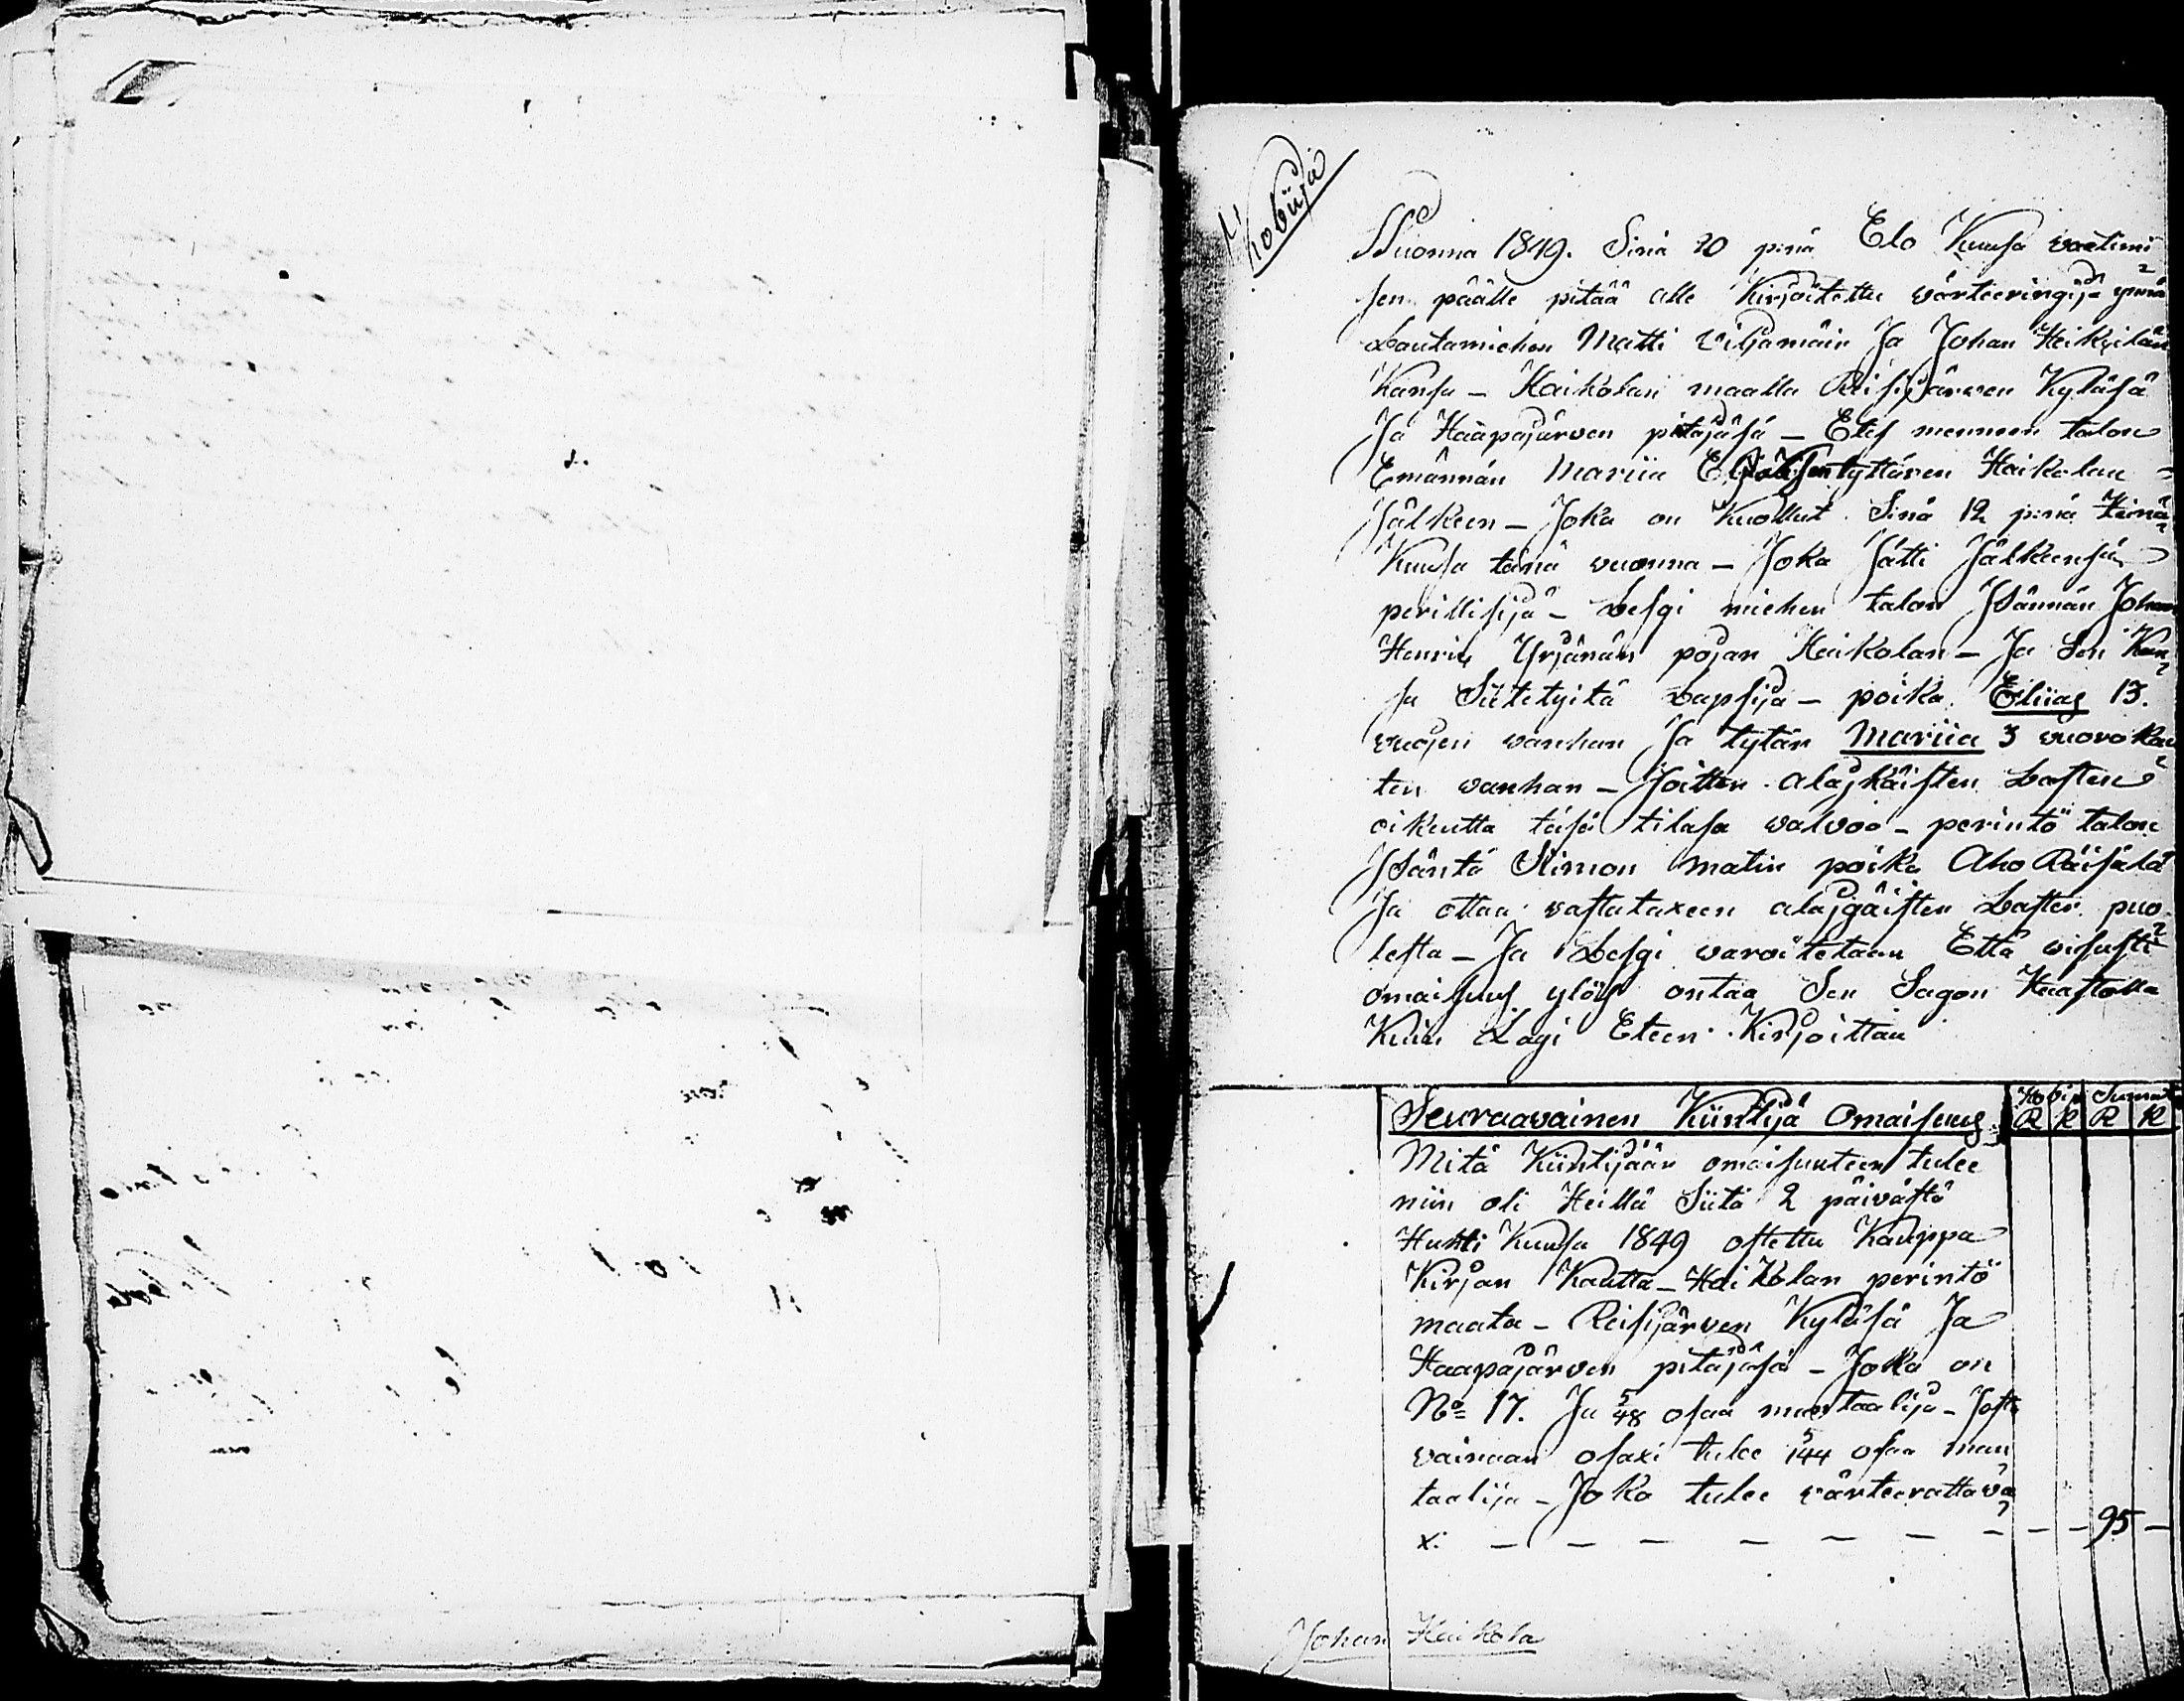 Hobiija
Wuonna 1849. Sinä 20 pnä Elo Kuusa vaatimi
sen päälle pitää alle Kirjoitettu värteeringijä ynnä
Lautamiehen Matti Viljamäin Ja Johan Heikilän
Kansa - Kaikolan maalla Reisijärven Kyläsä
Ja Haapajärven pitäjäsä - Etes mennen talon
Emännän Mariia tyttären Kaikolan
Jälkeen - Joka on Kuollut Sinä 12 pnä Heinä
Kuusa tänä vuonna - Joka Jätti Jälkeensä
perillisijä - Lesgi miehen talon Isännän Johan
Henrik Yrjänän pojan Kaikolan - Ja Sen Kan
sa Siitetyitä Lapsija - poika Eliias 13.
vuojen vanhan Ja tytär Mariia 3 vuoroka
ten vanhan - Joitten alajkäisten Lasten
oikeutta täsä tilasa valvoo - perintö talon
Isäntä Siimon Matin poika Aho Räisälä
Ja ottaa vastataxeen alajgäisten Lasten puo
lesta - Ja Lesgi varoitetaan Että visusti
omaisuus ylös antaa Sen Sagon Haastolla
Kuin Lagi Eteen Kirjoittaa
Seuraavainen Kiintijä Omaisuus Hobija Summat
R K R K
Mitä Kiintijään omaisuuteen tulee
niin oli Heillä Siitä 2 päivästä
Huhti Kuusa 1849 ostettu Kauppa
Kirjan Kautta - Kaikolan perintö
maata - Reisijärven Kyläsä Ja
Haapajärven pitäjäsä - Joka on
No 17. Ja 5/48 osaa mantaalija - Josta
vainaan osaxi tulee 5/144 osaa man
taalija - Joka tulee värteerattava
x: - - - - - - - - - 95 -
Johan Kaikola